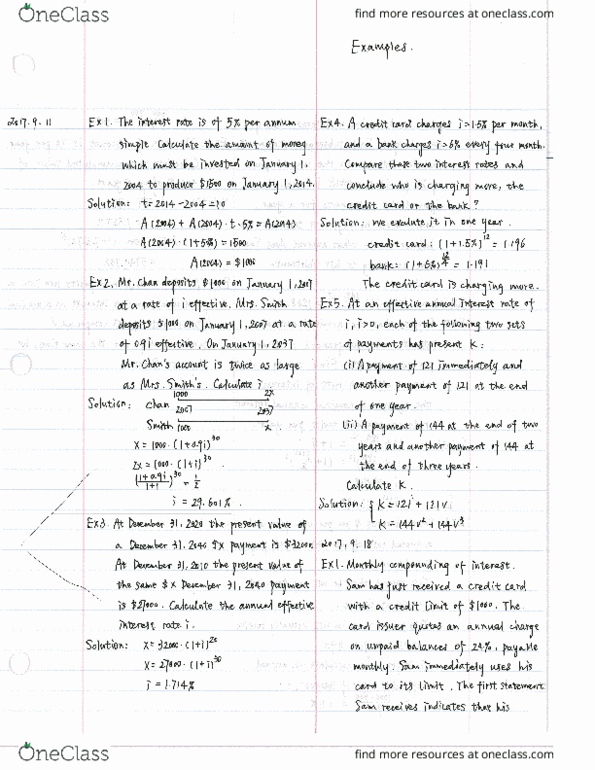 OneClass
find more resources at oneclass.com
Examples.
2017. 9. 11
Ex1. The interest rate is of 5% per annum
simple. Calculate the amount of money
which must be invested on January 1.
2004 to produce $1500 on January 1, 2014.
Solution: t=2014-2004=10
A(2004) + A(2004)·t·5% = A(2014)
A(2004)·(1+5%)=1500
A(2004) = $1000
Ex2. Mr. Chan deposits $1000 on January 1, 2007
at a rate of i effective. Mrs. Smith
deposits $1000 on January 1, 2007 at a rate
of 0.9i effective. On January 1, 2037
Mr. Chan's account is twice as large
as Mrs. Smith's. Calculate i
Solution:
1000 2x
chan
2007 2037
Smith 1000 x
X = 1000·(1+0.9i)^30
2X = 1000·(1+i)^30
((1+0.9i)/(1+i))^30 = 1/2
i = 29.601%.
Ex3. At December 31, 2020 the present value of
a December 31, 2040 $X payment is $32000.
At December 31, 2010 the present value of
the same $X December 31, 2040 payment
is $27000. Calculate the annual effective
interest rate i.
Solution: X=32000·(1+i)^20
X=27000·(1+i)^30
i=1.714%
Ex4. A credit card charges i=1.5% per month,
and a bank charges i=6% every four month.
Compare these two interest rates and
conclude who is charging more, the
credit card or the bank?
Solution: we evaluate it in one year.
credit card: (1+1.5%)^12 = 1.196
bank: (1+6%)^12/4 = 1.191
The credit card is charging more.
Ex5. At an effective annual interest rate of
i, i>0, each of the following two sets
of payments has present K:
(i) A payment of 121 immediately and
another payment of 121 at the end
of one year.
(ii) A payment of 144 at the end of two
years and another payment of 144 at
the end of three years.
Calculate K.
Solution: { K=121 + 121v
K=144v²+144v³
2017. 9. 18
Ex1. Monthly compounding of interest.
Sam has just received a credit card
with a credit limit of $1000. The
card issuer quotes an annual charge
on unpaid balances of 24%, payable
monthly. Sam immediately uses his
card to its limit. The first statement
Sam receives indicates that his
OneClass
find more resources at oneclass.com